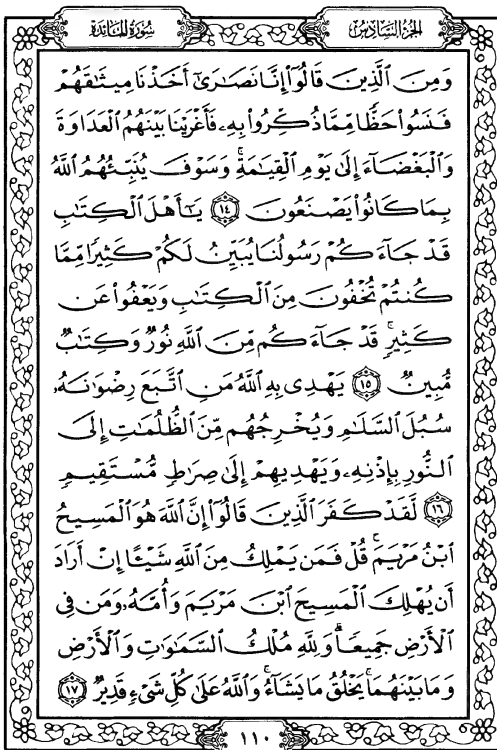 سُورَةُ المَائدة
الجزء السادس
وَمِنَ ٱلَّذِينَ قَالُوٓاْ إِنَّا نَصَٰرَىٰٓ أَخَذۡنَا مِيثَٰقَهُمۡ
فَنَسُواْ حَظّٗا مِّمَّا ذُكِّرُواْ بِهِۦ فَأَغۡرَيۡنَا بَيۡنَهُمُ ٱلۡعَدَاوَةَ
وَٱلۡبَغۡضَآءَ إِلَىٰ يَوۡمِ ٱلۡقِيَٰمَةِۚ وَسَوۡفَ يُنَبِّئُهُمُ ٱللَّهُ
بِمَا كَانُواْ يَصۡنَعُونَ ١٤ يَٰٓأَهۡلَ ٱلۡكِتَٰبِ
قَدۡ جَآءَكُمۡ رَسُولُنَا يُبَيِّنُ لَكُمۡ كَثِيرٗا مِّمَّا
كُنتُمۡ تُخۡفُونَ مِنَ ٱلۡكِتَٰبِ وَيَعۡفُواْ عَن
كَثِيرٖۚ قَدۡ جَآءَكُم مِّنَ ٱللَّهِ نُورٞ وَكِتَٰبٞ
مُّبِينٞ ١٥ يَهۡدِي بِهِ ٱللَّهُ مَنِ ٱتَّبَعَ رِضۡوَٰنَهُۥ
سُبُلَ ٱلسَّلَٰمِ وَيُخۡرِجُهُم مِّنَ ٱلظُّلُمَٰتِ إِلَى
ٱلنُّورِ بِإِذۡنِهِۦ وَيَهۡدِيهِمۡ إِلَىٰ صِرَٰطٖ مُّسۡتَقِيمٖ
١٦ لَّقَدۡ كَفَرَ ٱلَّذِينَ قَالُوٓاْ إِنَّ ٱللَّهَ هُوَ ٱلۡمَسِيحُ
ٱبۡنُ مَرۡيَمَۚ قُلۡ فَمَن يَمۡلِكُ مِنَ ٱللَّهِ شَيۡـًٔا إِنۡ أَرَادَ
أَن يُهۡلِكَ ٱلۡمَسِيحَ ٱبۡنَ مَرۡيَمَ وَأُمَّهُۥ وَمَن فِي
ٱلۡأَرۡضِ جَمِيعٗاۗ وَلِلَّهِ مُلۡكُ ٱلسَّمَٰوَٰتِ وَٱلۡأَرۡضِ
وَمَا بَيۡنَهُمَاۚ يَخۡلُقُ مَا يَشَآءُۚ وَٱللَّهُ عَلَىٰ كُلِّ شَيۡءٖ قَدِيرٞ ١٧
١١٠